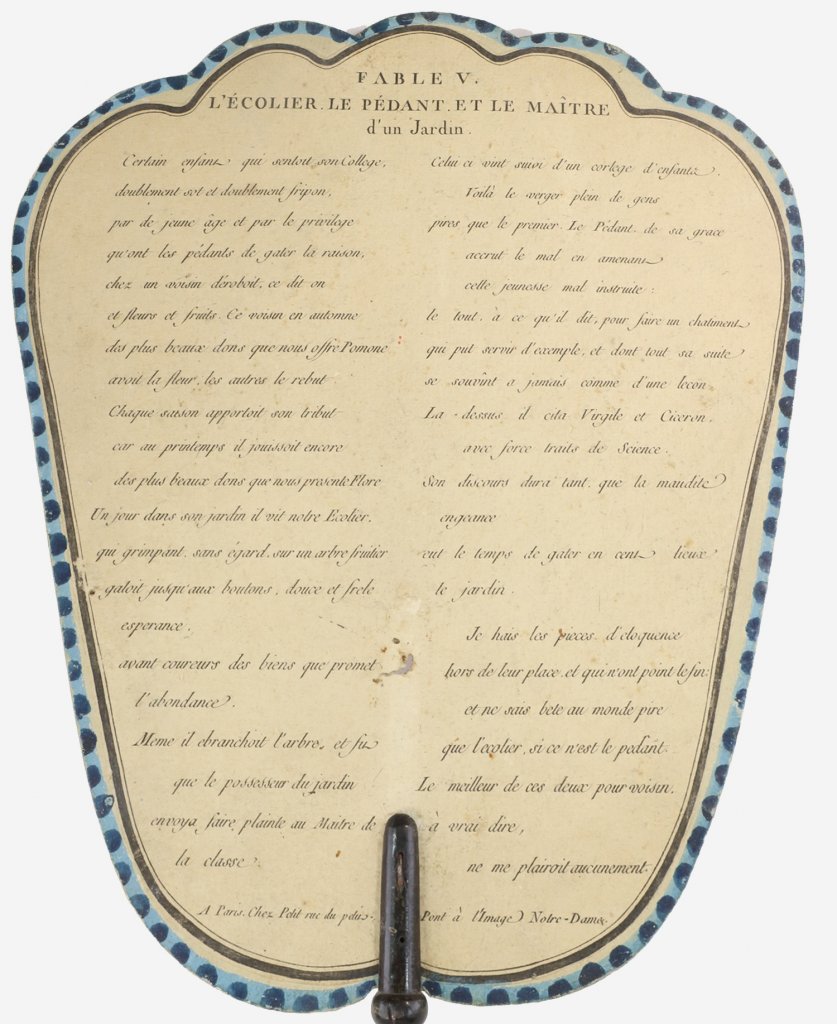 FABLE V.
L'ÉCOLIER, LE PÉDANT, ET LE MAÎTRE
d'un Jardin.
Certain enfant qui sentoit son College,
doublement sot et doublement fripon,
par de jeune âge et par le privilege
qu'ont les pédants de gater la raison,
chez un voisin déroboit, ce dit on
et fleurs et fruits. Ce voisin en automne
des plus beaux dons que nous offre Pomone
avoit la fleur, les autres le rebut.
Chaque saison apportoit son tribut
car au printemps il jouissoit encore
des plus beaux dons que nous presente Flore
Un jour dans son jardin il vit notre Ecolier,
qui grimpant, sans égard, sur un arbre fruitier
gatoit jusqu'aux boutons, douce et frele
esperance,
avant coureurs des biens que promet
l'abondance.
Meme il ebranchoit l'arbre, et fit
que le possesseur du jardin
envoya faire plainte au Maitre de
la classe.
Celui ci vint suivi d'un cortege d'enfants.
Voilà le verger plein de gens
pires que le premier. Le Pédant, de sa grace
accrut le mal en amenant
cette jeunesse mal instruite :
le tout, à ce qu'il dit, pour faire un chatiment
qui put servir d'exemple, et dont tout sa suite
se souvînt a jamais comme d'une lecon.
La-dessus il cita Virgile et Ciceron,
avec force traits de Science.
Son discours dura tant, que la maudite
engeance
eut le temps de gater en cent lieux
le jardin.
Je hais les pieces d'eloquence
hors de leur place, et qui n'ont point de fin:
et ne sais bete au monde pire
que l'ecolier, si ce n'est le pedant.
Le meilleur de ces deux pour voisin,
à vrai dire,
ne me plairoit aucunement.
A Paris, Chez Petit rue du petit Pont à l'Image Notre-Dame.